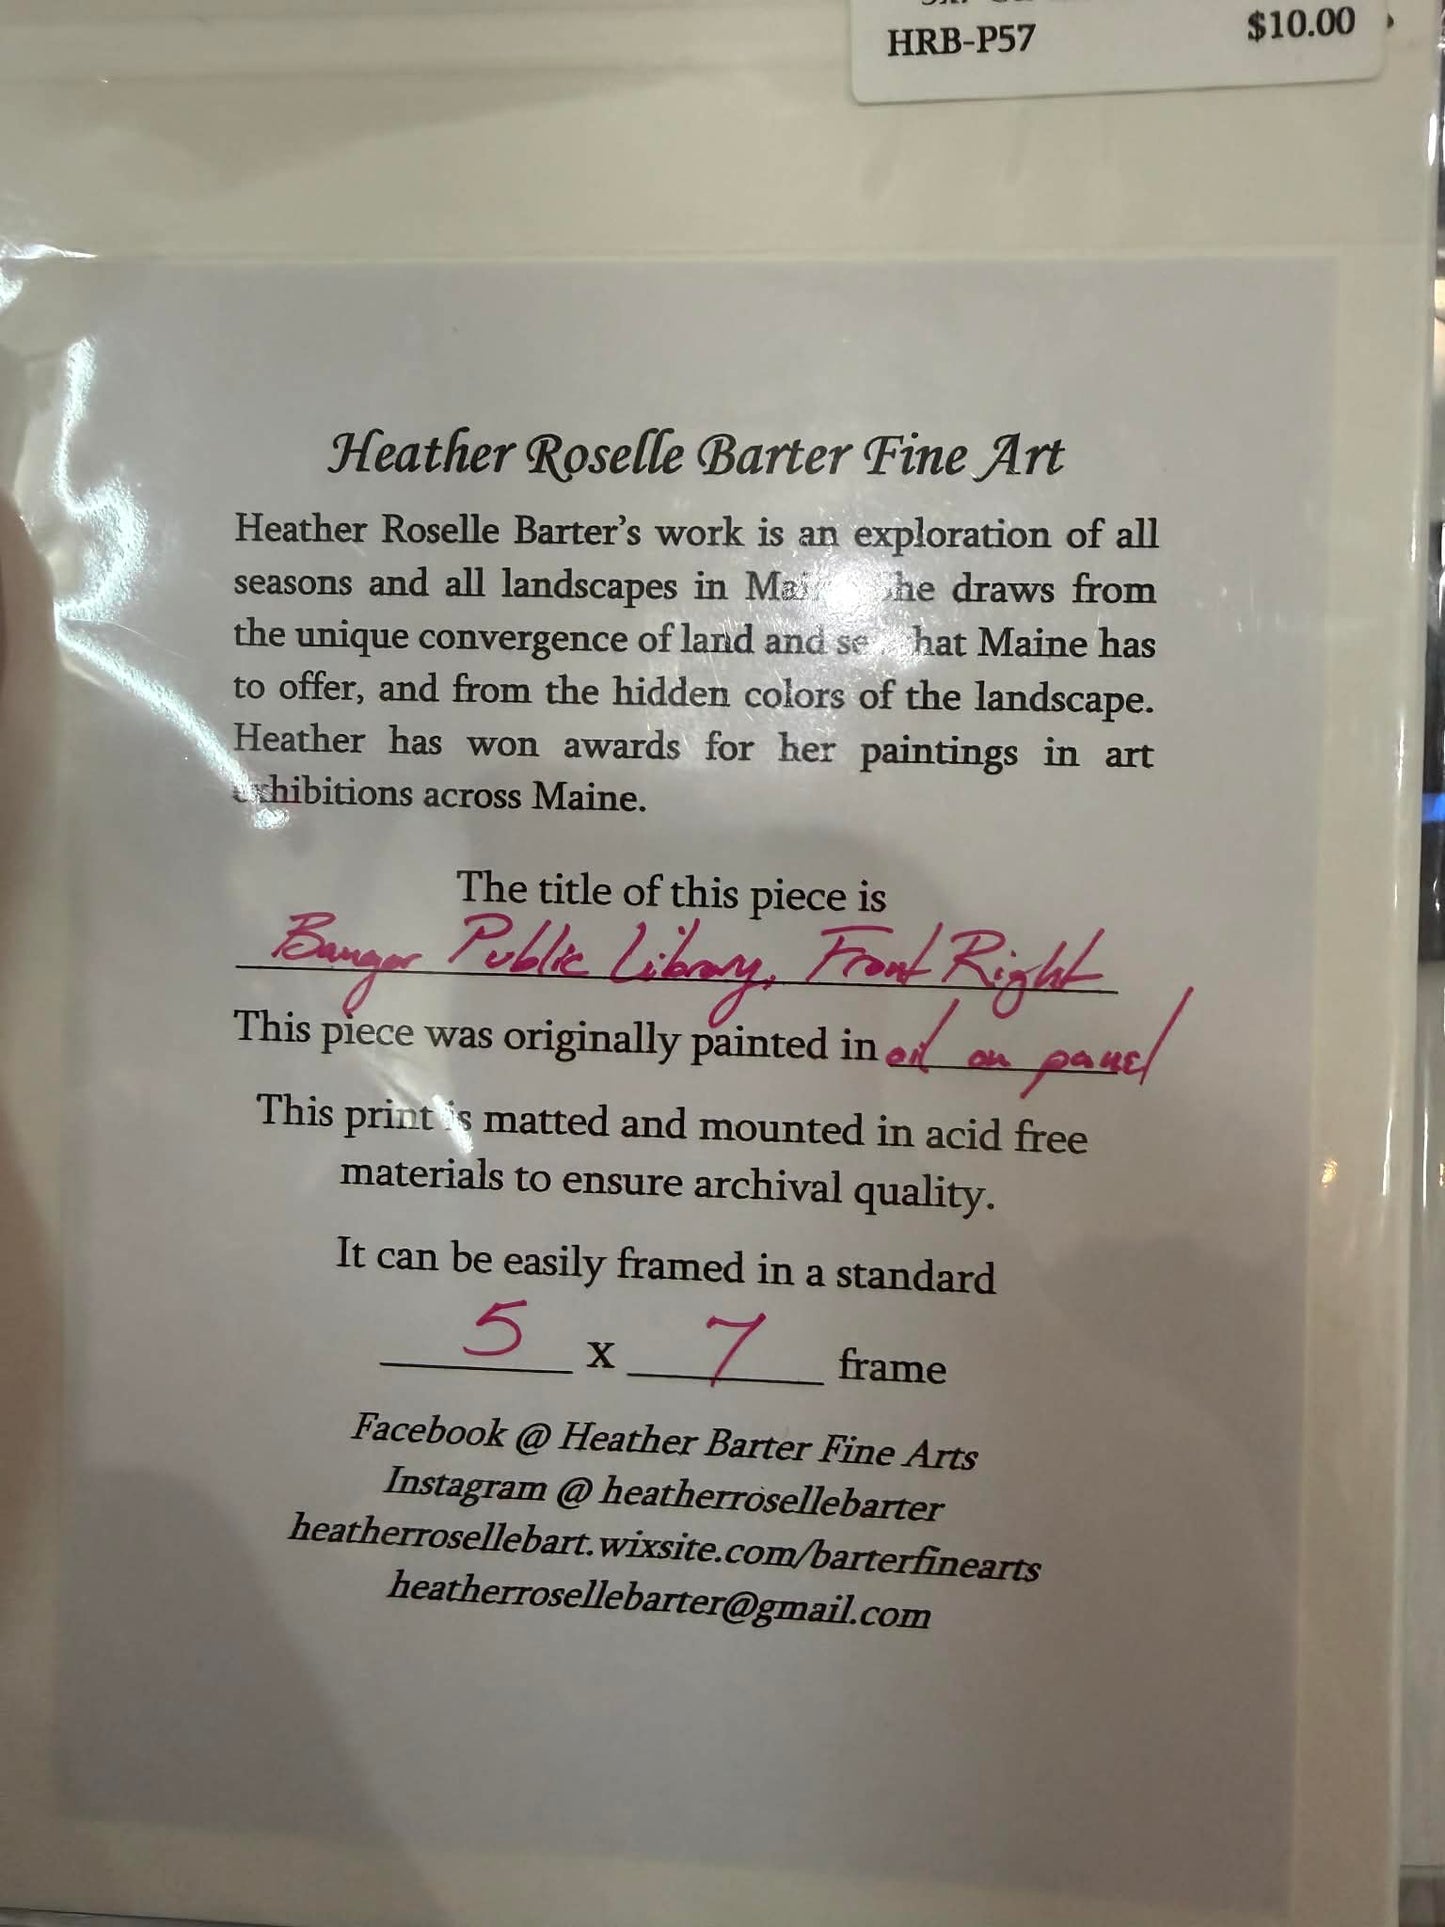 HRB-P57 $10.00
Heather Roselle Barter Fine Art
Heather Roselle Barter's work is an exploration of all
seasons and all landscapes in draws from
the unique convergence of land and Maine has
to offer, and from the hidden colors of the landscape.
Heather has won awards for her paintings in art
exhibitions across Maine.
The title of this piece is
Bangor Public Library, Front Right
This piece was originally painted in oil on panel
This print is matted and mounted in acid free
materials to ensure archival quality.
It can be easily framed in a standard
5 x 7 frame
Facebook @ Heather Barter Fine Arts
Instagram @ heatherrosellebarter
heatherrosellebart.wixsite.com/barterfinearts
heatherrosellebarter@gmail.com